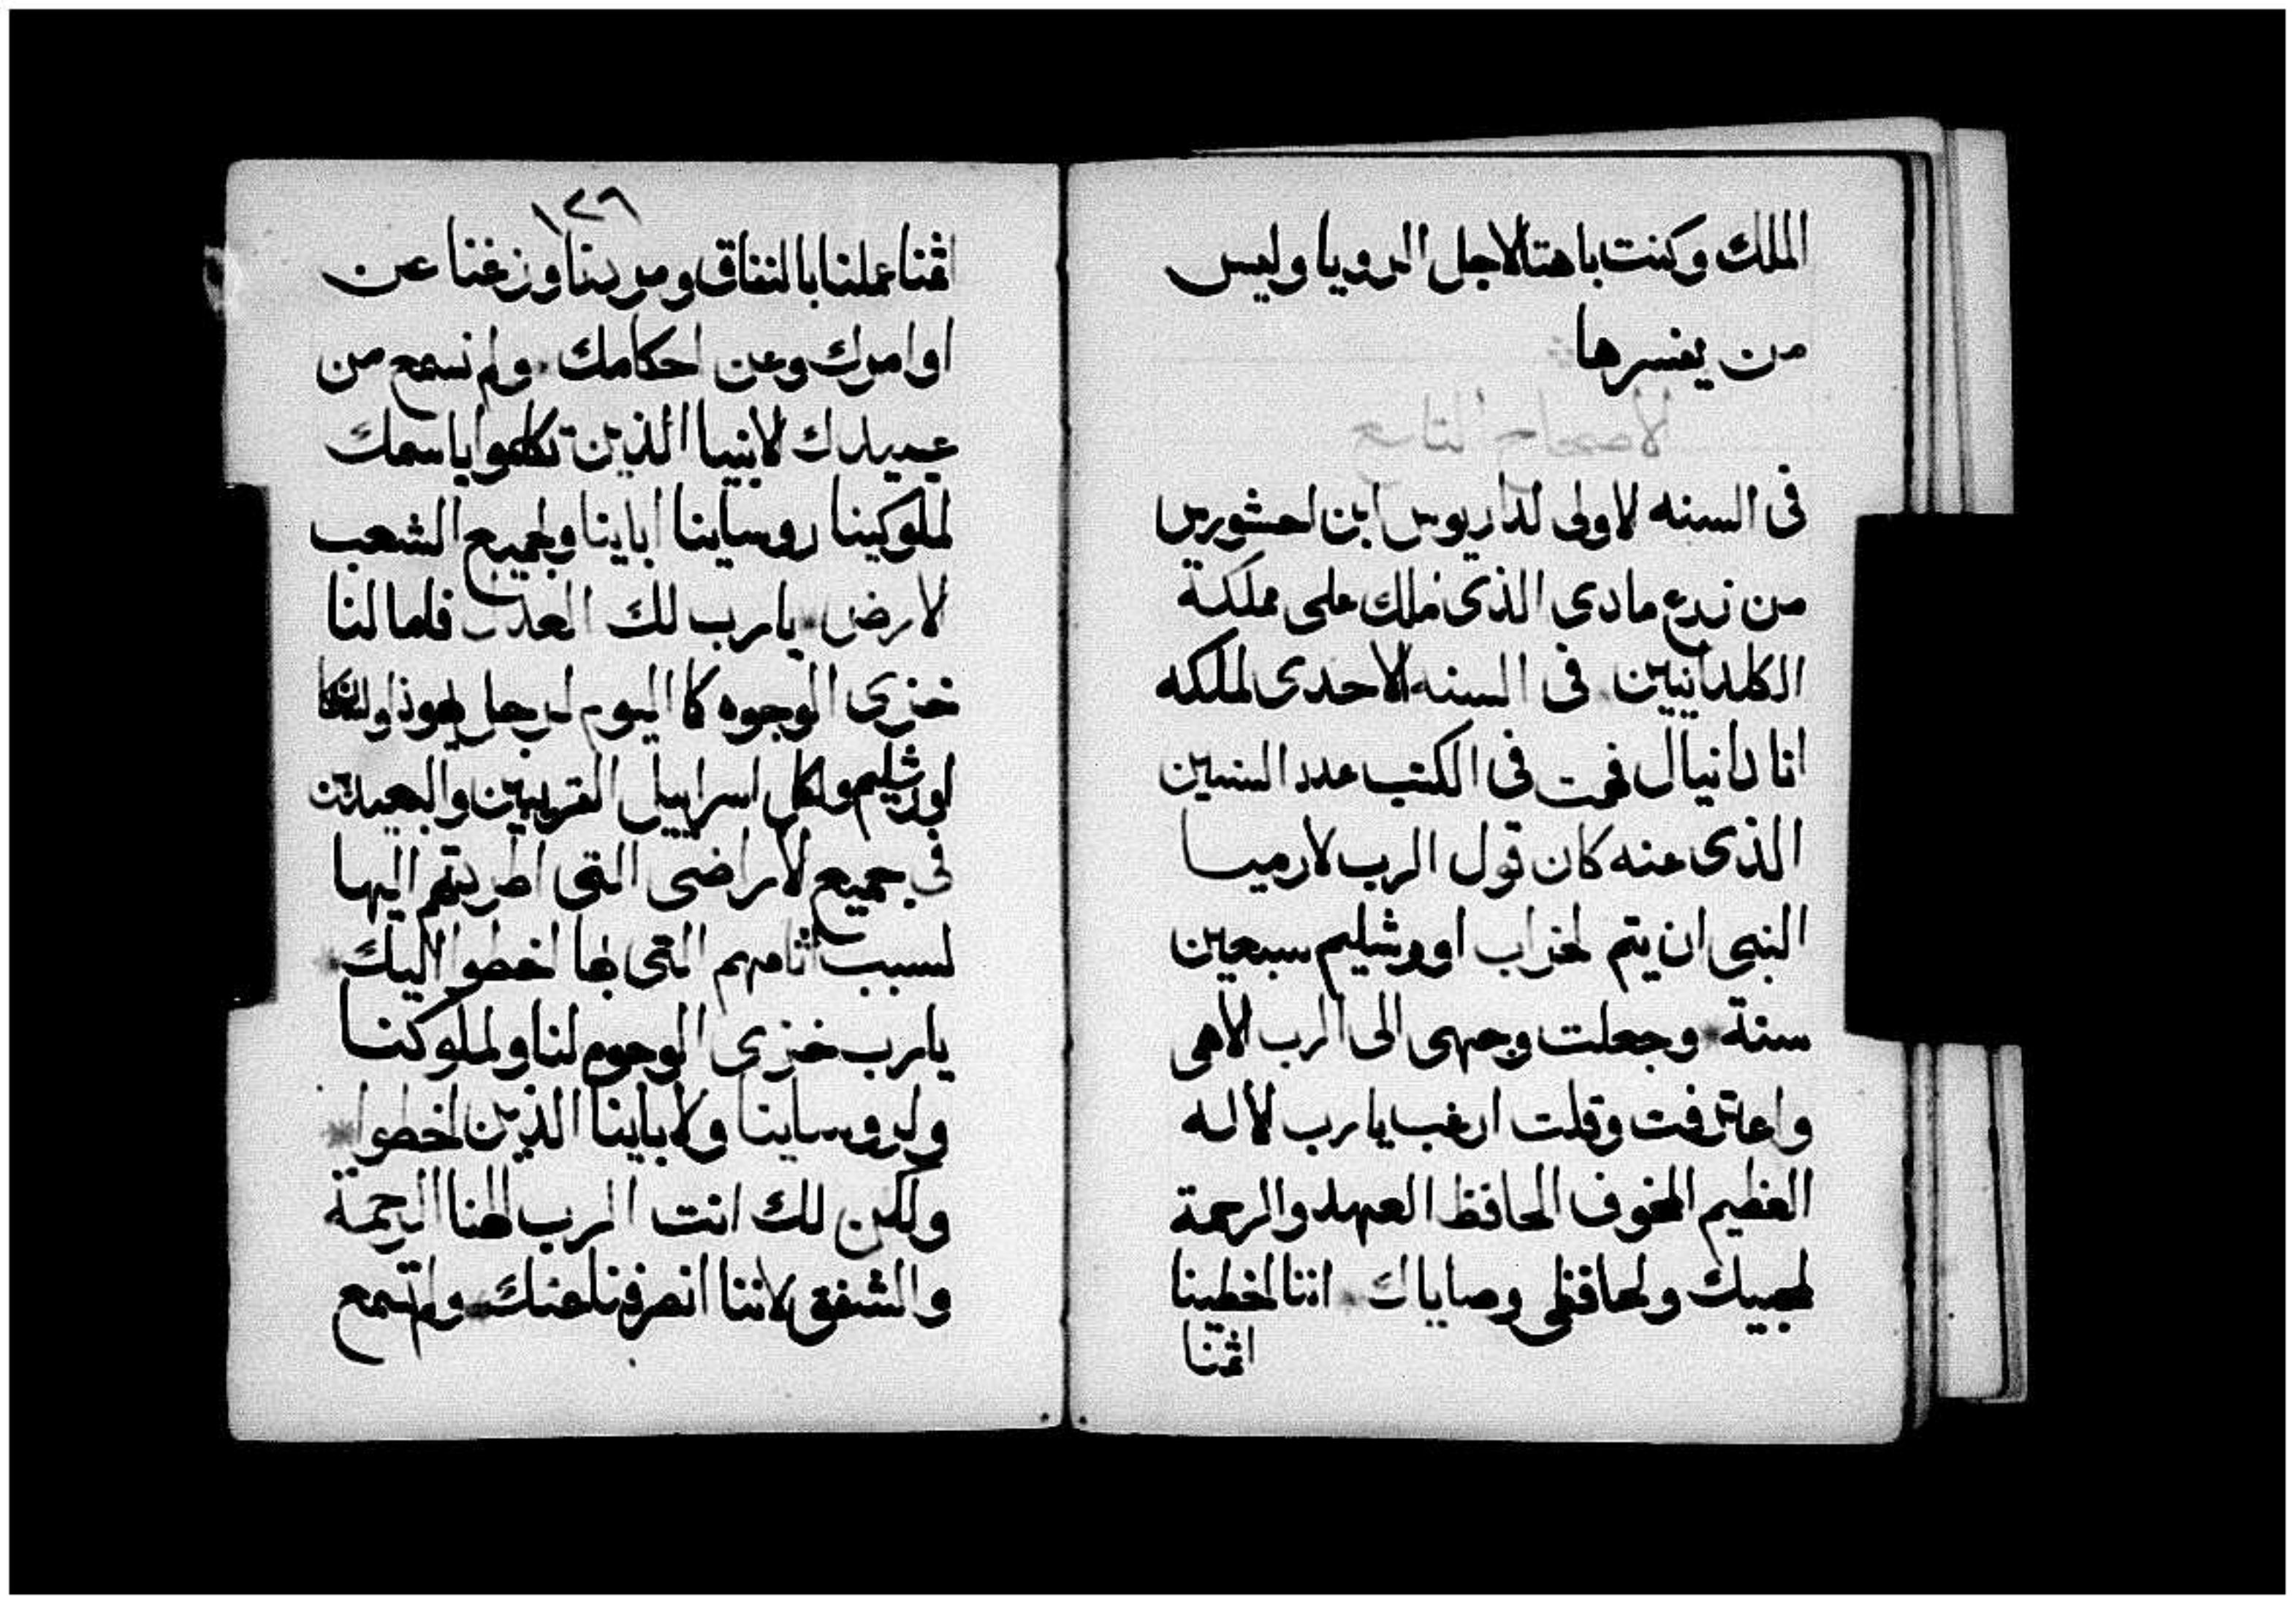 الملك وكنت باهتا لاجل الرويا وليس
من يفسرها
لاصحاح التاسع
فى السنه لاولى لداريوس ابن احشورس
من زرع مادى الذى ملك على مملكة
الكلدانيين فى السنه الاحدى لملكه
انا دانيال فهمت فى الكتب عدد السنين
الذى عنه كان قول الرب لارميا
النبى ان يتم لخراب اورشليم سبعين
سنة * وجعلت وجهى الى الرب لاهى
واعترفت وقلت ارغب يا رب لاله
العظيم المخوف الحافظ العهد والرحمة
لمحبيك ولحافظى وصاياك * اننا اخطينا
اثمنا
١٢٩
اثمنا عملنا بالنفاق ومردنا وزغنا عن
اوامرك وعن احكامك * ولم نسمع من
عبيدك لانبيا الذين تكلموا باسمك
لملوكينا روساينا اباينا ولجميع الشعب
لارض * يا رب لك العدل فاما لنا
خزى الوجوه كا اليوم لرجل يهوذا ولسكا
اورشليم ولكل اسراييل القريبين والبعيدين
فى جميع لاراضى التى اطردتهم اليها
لسبب اثامهم التى بها اخطوا اليك *
يا رب خزى الوجوه لنا ولملوكنا
ولروساينا ولاباينا الذين اخطوا *
ولكن لك انت الرب الهنا الرحمة
والشفق لاننا انصرفنا عنك * ولم نسمع